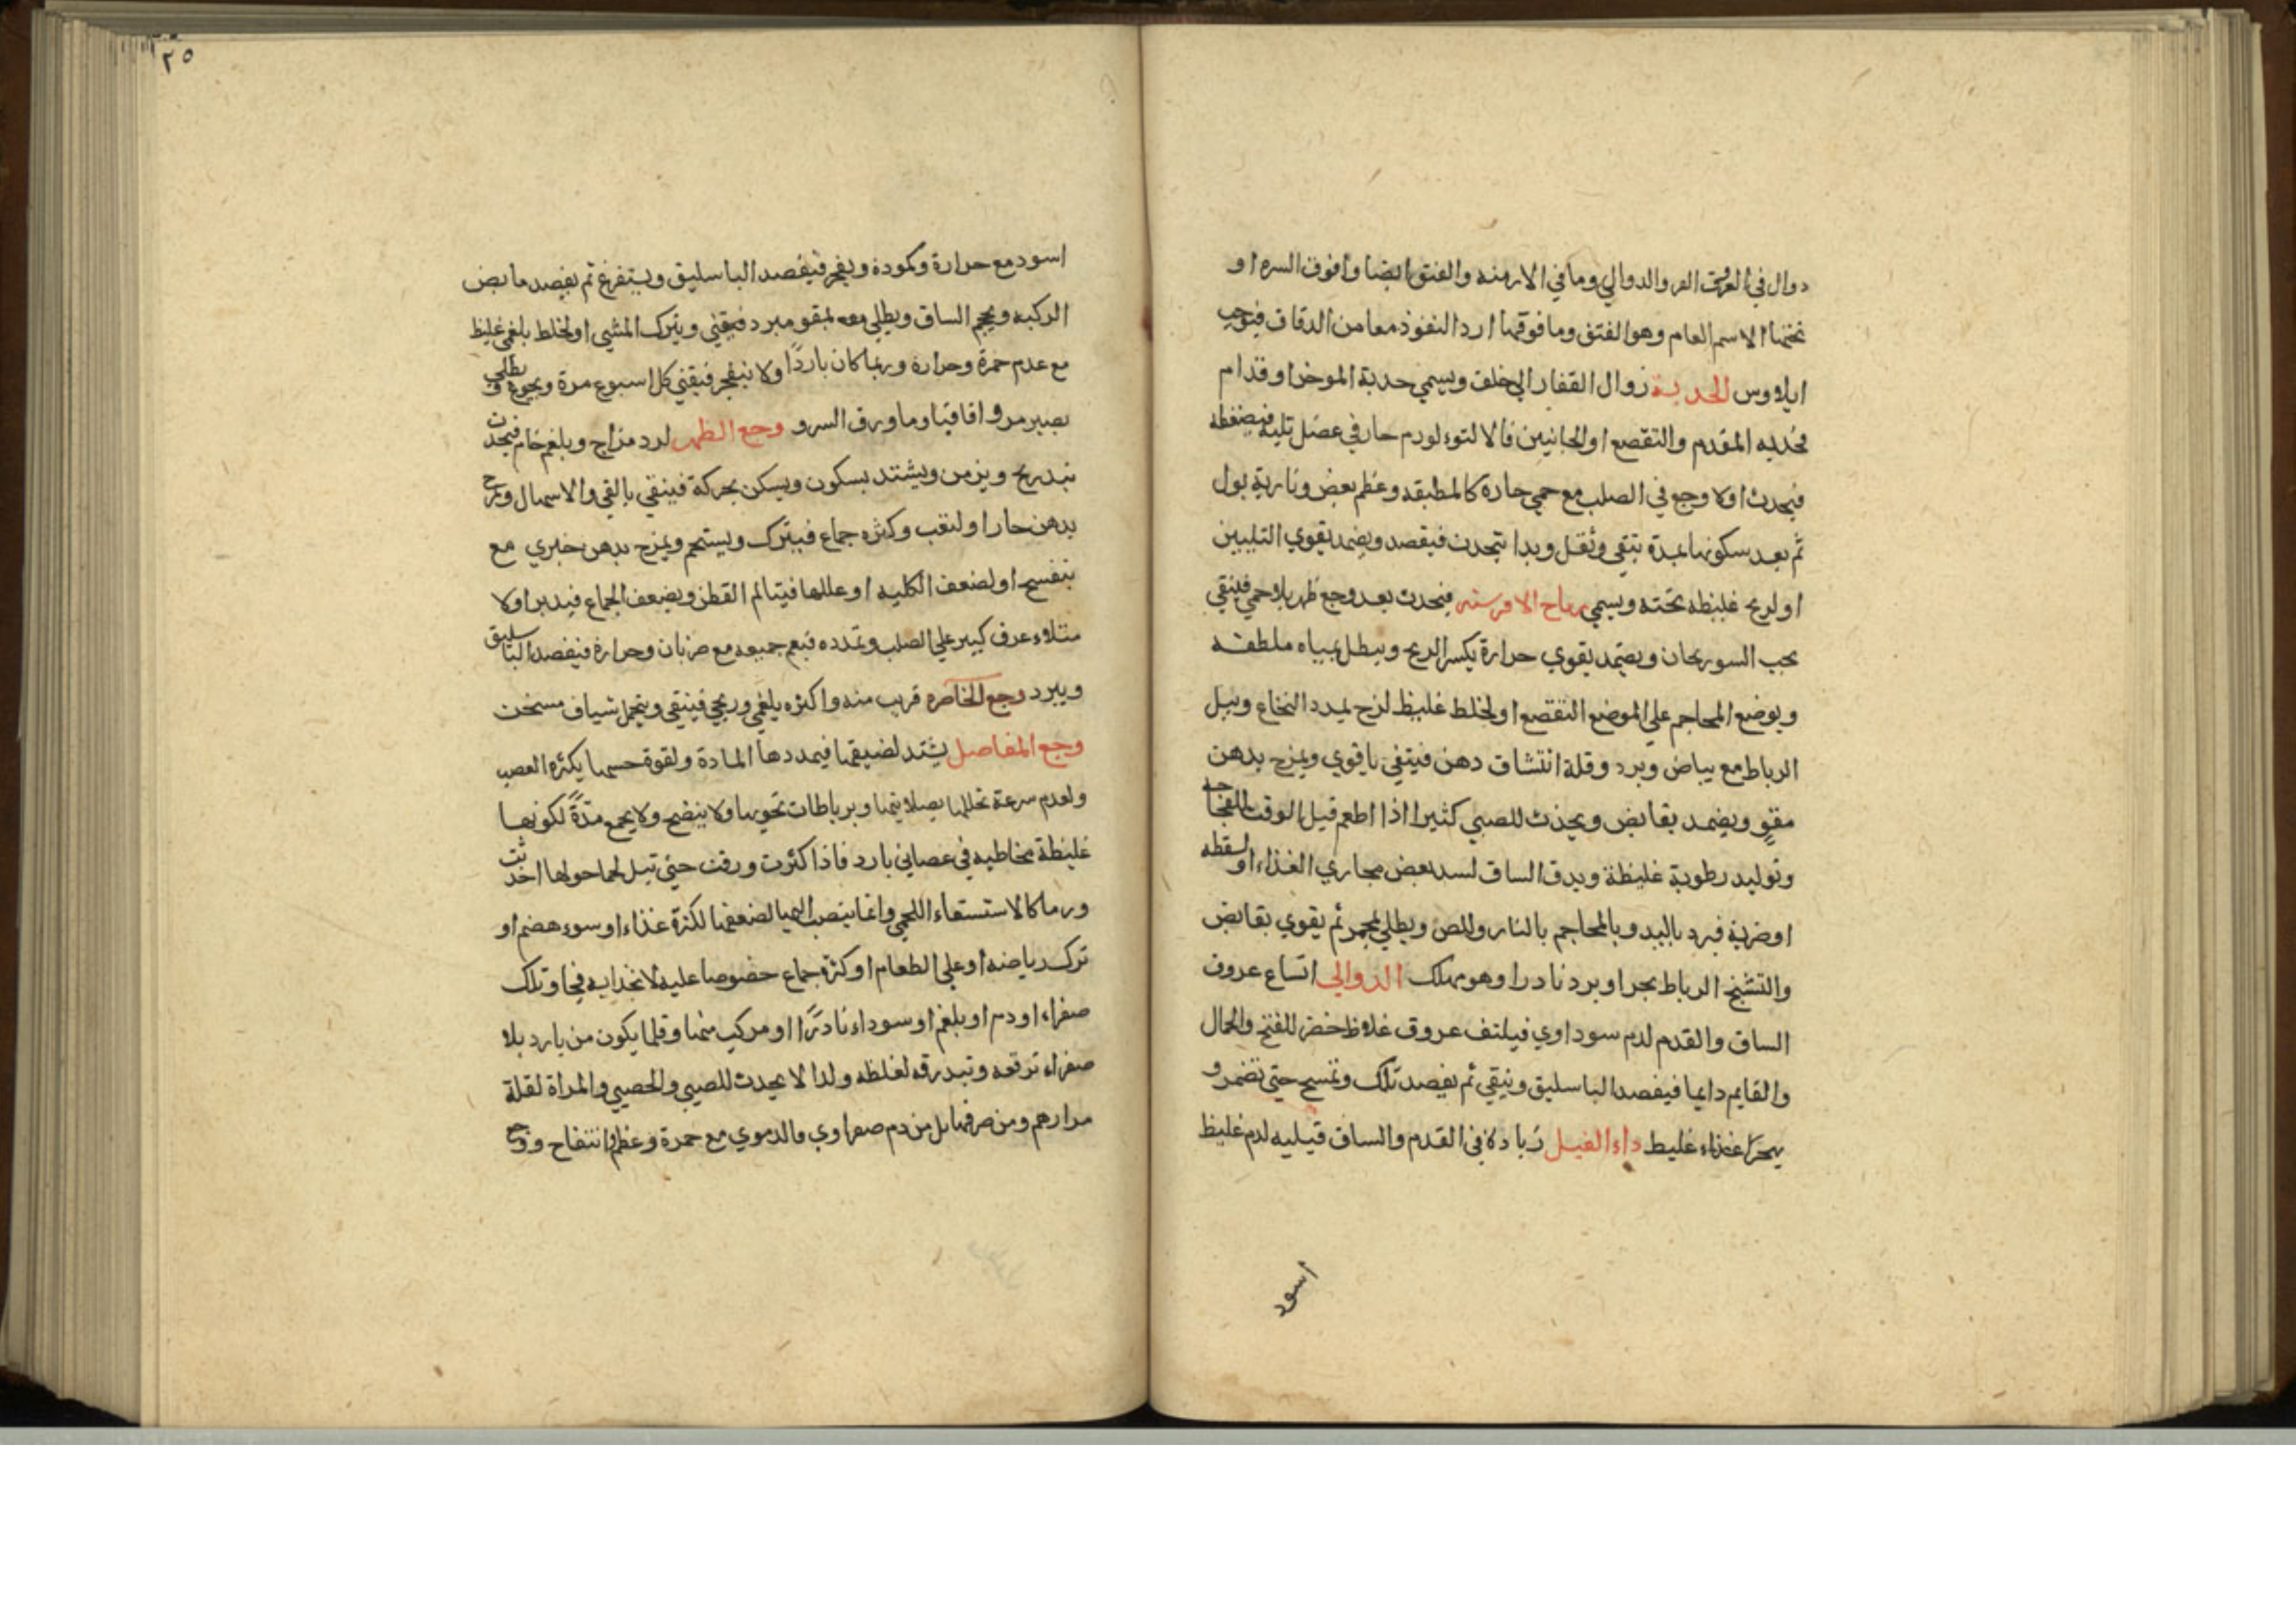 دوال في العرق المر والدوالي وما في الاربنه والفتق ايضا وافوق السره او
تحتها الاسم العام وهو الفتق وما فوقها اردا النفوذ معا من الدقاق فيوجب
ايلاوس الحدبة زوال الفقار الي خلف ويسمي حدبة الموخر او قدام
فحدبه المقدم والتقصع او الجانبين فالالتوء لورم حار في عضل تليه فيضغطه
فيحدث اولا وجع في الصلب مع حمي حارة كالمطبقه وعظم بعض ونارية بول
ثم بعد سكونها بمدة تبقي وثقل وبدا يتحدث فيقصد ويضمد بقوي التليين
او لريح غليظه تحته ويسمي رياح الافرسه فيحدث بعد وجع ظهر بلا حمي فينقي
بحب السورنجان ويضمد بقوي حرارة يكسر الريح وينطل بمياه ملطفه
ويوضع المحاجم علي الموضع التقصع او لخلط غليظ لزج يمدد النخاع ويبل
الرباط مع بياض وبرد وقلة انتشاف دهن فينقي باقوي ويمرخ بدهن
مقو ويضمد بقابض ويحدث للصبي كثيرا اذا اطعم قبل الوقت للفجاجه
وتوليد رطوبة غليظة ويدق الساق لسد بعض مجاري الغذاء او لسقطه
او ضربة فيرد باليد وبالمحاجم بالنار وللص ويطلي بمجمر ثم يقوي بقابض
والتشنج الرباط بحر او برد نادرا وهو مهلك الدوالي اتساع عروق
الساق والقدم لدم سوداوي فيلتف عروق غلاظ خضر للفتح والحمال
والقايم دايما فيفصد الباسليق وينقي ثم يفصد تلك وتمسح حتي تضمر و
يهجر غذاء غليظ داء الفيل زيادة في القدم والساق قيليه لدم غليظ
اسود
٢٥
اسود مع حرارة وكمودة ويفجر فيفصد الباسليق ويستفرغ ثم يفصد مابض
الركبه ويحجم الساق ويطلي معه بمقو مبرد فيقني ويترك المشي او لخلط بلغمي غليظ
مع عدم حمرة وحرارة وربما كان باردًا ولا ينفجر فيقني كل اسبوع مرة ويجوع ويطلي
بصبر مر واقاقيا وما ورق السرو وجع الظهر لرد مزاج وبلغم خام فيحدث
بتدريج ويزمن ويشتد بسكون ويسكن بحركة فينقي بالقي والاسهال ويمرخ
بدهن حار او لتعب وكثره جماع فيترك ويستحم ويمزج بدهن خيري مع
بنفسج او لضعف الكليه او عللها فيتالم القطن ويضعف الجماع فيدبر اولا
متلاء عرق كبير علي الصلب وتمدده فيعم جميعه مع ضربان وحرارة فيفصد الباسليق
ويبرد وجع الخاصره قريب منه واكثره بلغمي وريحي فينقي ويتحمل شياف مسخن
وجع المفاصل يشتد لضيقها فيمددها المادة ولقوة حسها بكثره العصب
ولعدم سرعة تحللها بصلابتها وبرباطات تحويها ولا ينضج ولا يجمع مدةً لكونها
غليظة مخاطيه في عصاني بارد فاذا كثرت ورقت حتي تبل لحما حولها احدثت
ورما كالاستسقاء اللحمي وانما ينصب اليها لضعفها لكثرة غذاء او سوء هضم او
ترك رياضه او علي الطعام او كثرة جماع خصوصا عليه لانجذابه فجا وتلك
صفراء او دم او بلغم او سوداء نادرًا او مركب منها وقلما يكون من بارد بلا
صفراء ترققه وتبدرقه لغلظه ولذا لا يحدث للصبي والخصي والمراة لقلة
مرارهم ومن صرفها بل من دم صفراوي فالدموي مع حمرة وعظم انتفاح ووجع